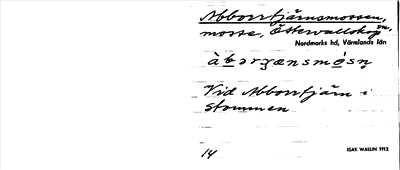 Abborrtjärnsmossen,
mosse, Östervallskog sn,
Nordmarks hd, Värmlands län
Vid Abborrtjärn i
Stommen
14 ISAK WALLIN 1912